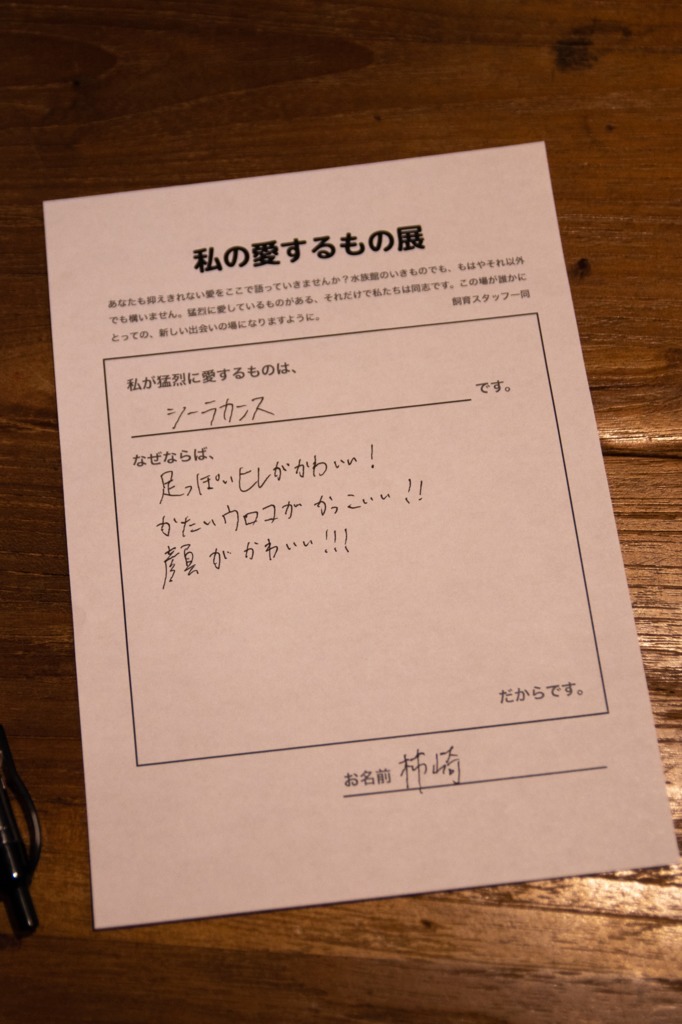 私の愛するもの展
あなたも抑えきれない愛をここで語っていきませんか？水族館のいきものでも、もはやそれ以外
でも構いません。猛烈に愛しているものがある、それだけで私たちは同志です。この場が誰かに
とっての、新しい出会いの場になりますように。
飼育スタッフ一同
私が猛烈に愛するものは、
シーラカンス
です。
なぜならば、
足っぽいヒレがかわいい！
かたいウロコがかっこいい！！
顔がかわいい！！！
だからです。
お名前 柿崎